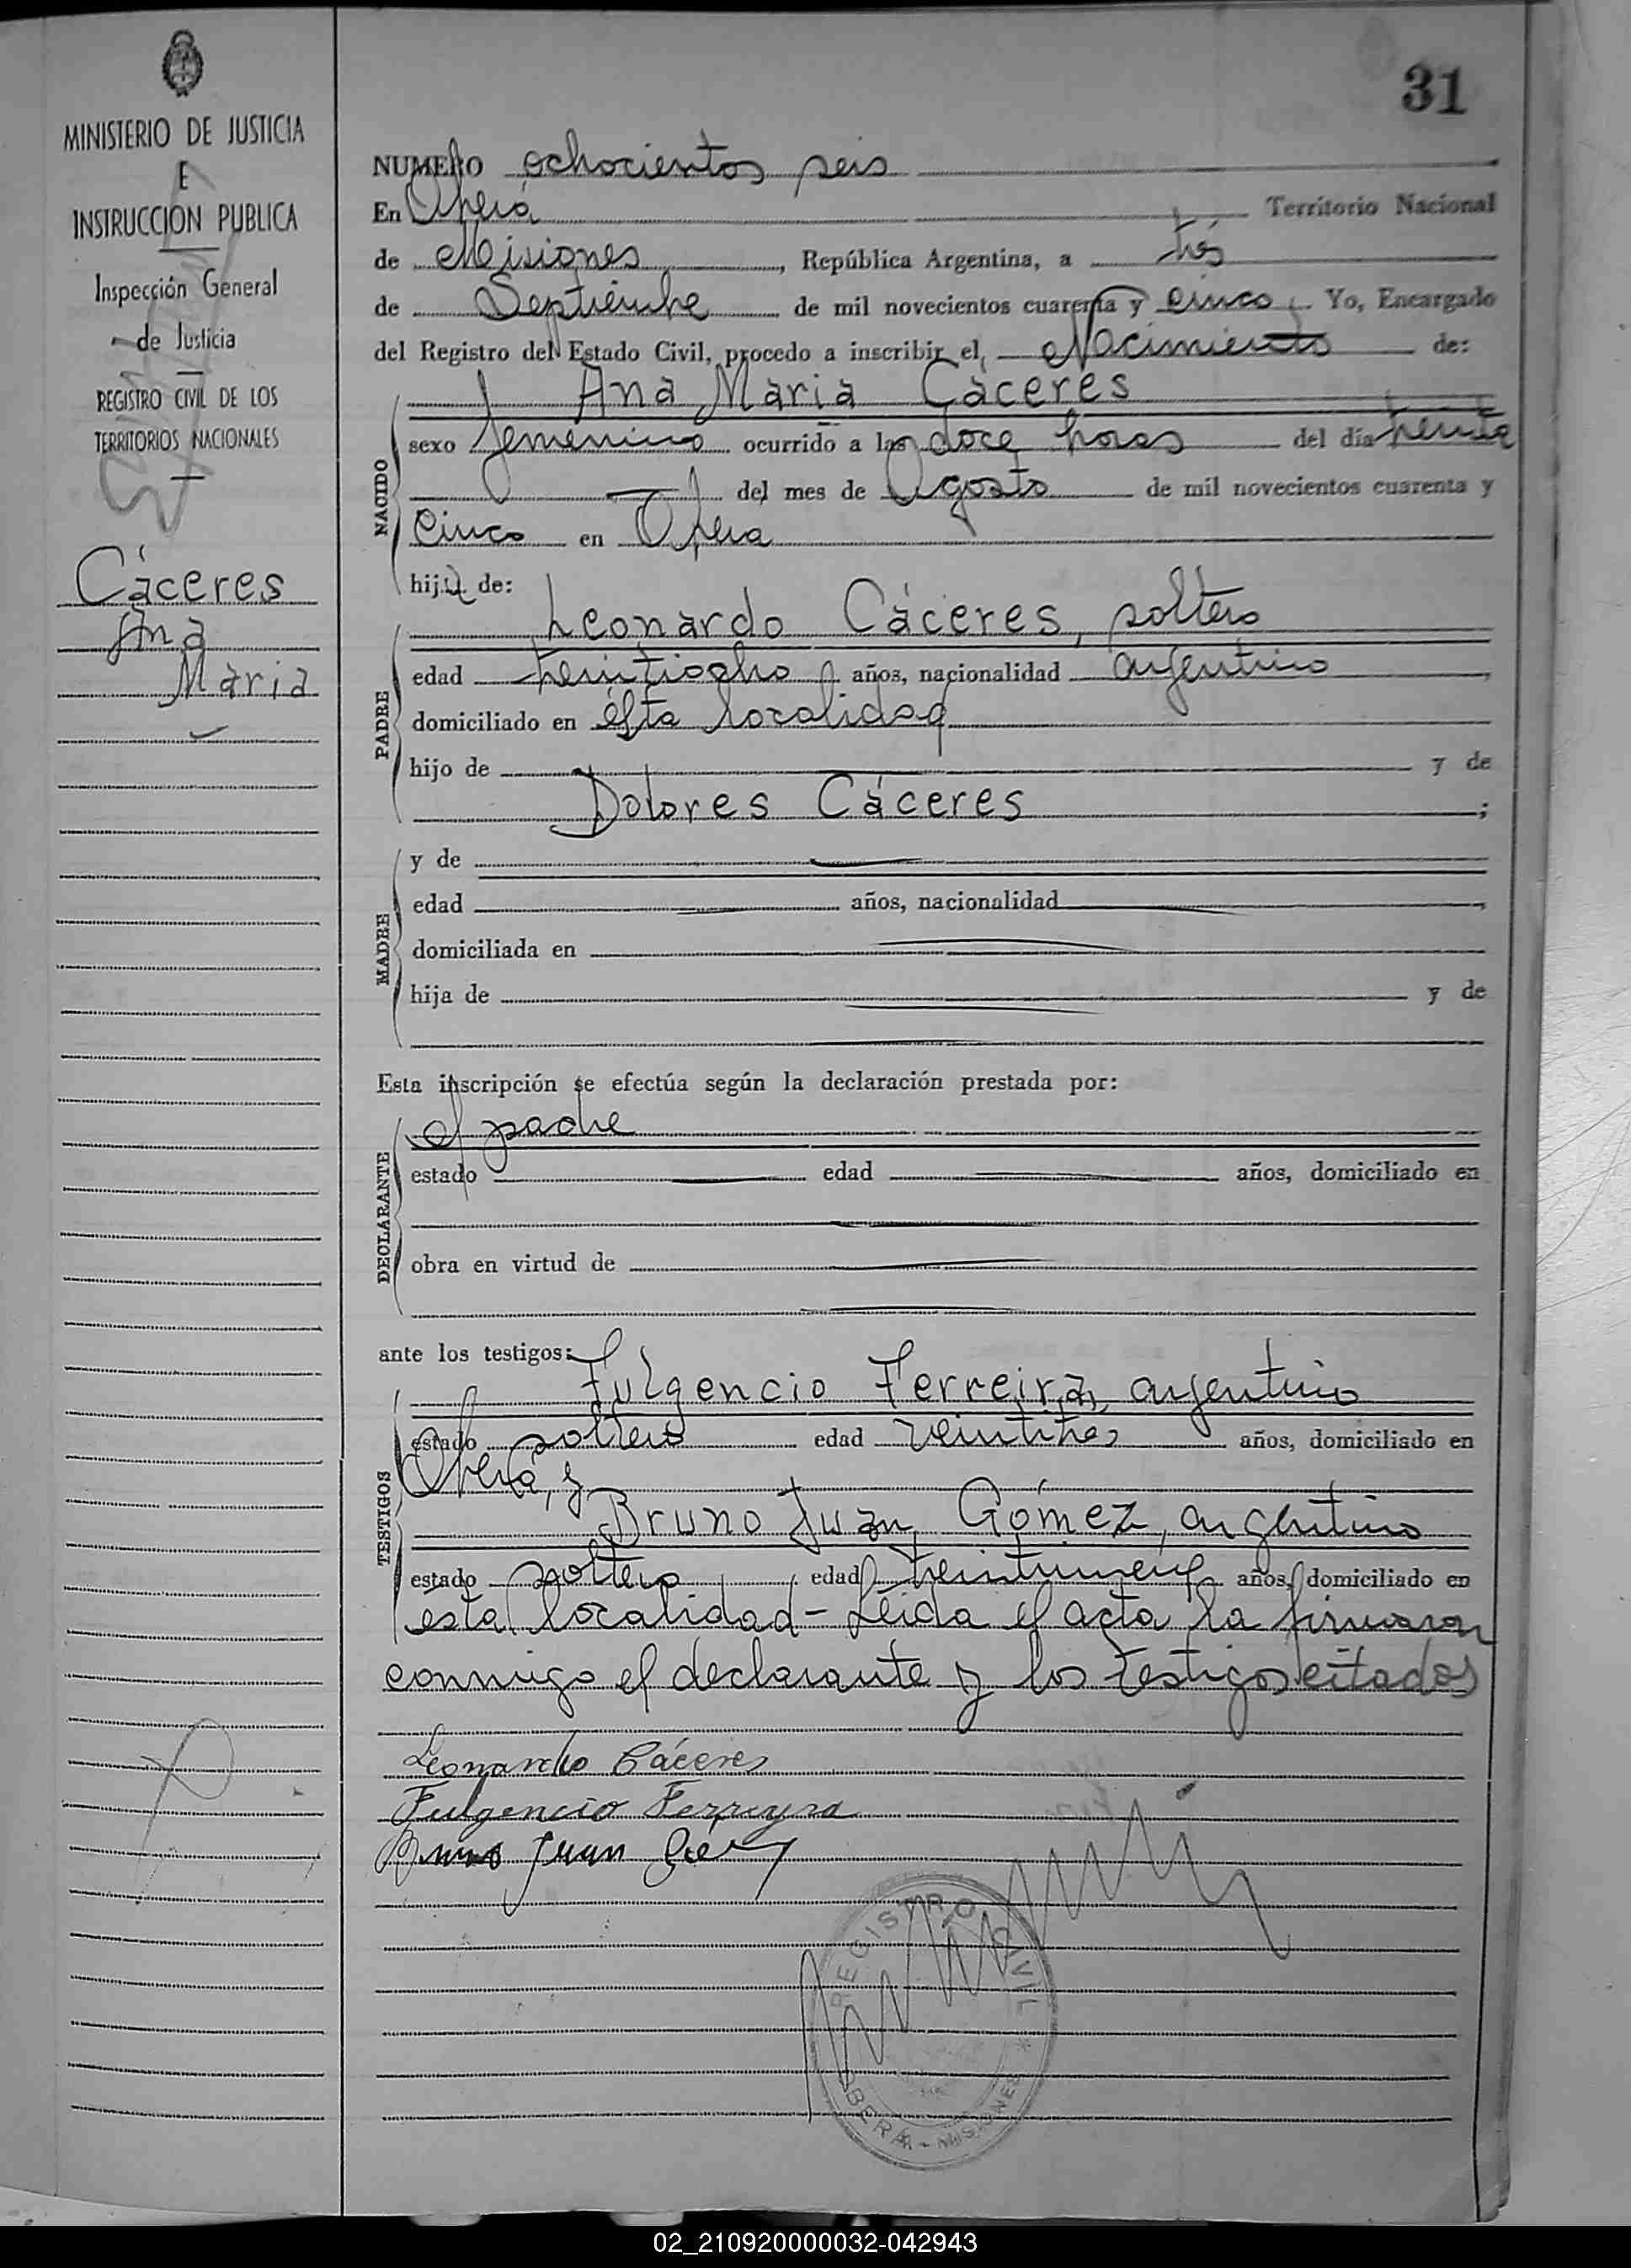 31
MINISTERIO DE JUSTICIA
E
INSTRUCCIÓN PUBLICA
Inspección General
de Justicia
REGISTRO CIVIL DE LOS
TERRITORIOS NACIONALES
Cáceres
Ana
Maria
NUMERO ochocientos seis
En Oberá Territorio Nacional
de Misiones, República Argentina, a tres
de Septiembre de mil novecientos cuarenta y cinco. Yo, Encargado
del Registro del Estado Civil, procedo a inscribir el Nacimiento de:
NACIDO
Ana Maria Cáceres
sexo femenino ocurrido a las doce horas del día treinta
del mes de Agosto de mil novecientos cuarenta y
cinco en Oberá
hija de:
PADRE
Leonardo Cáceres, soltero
edad treintiocho años, nacionalidad argentino,
domiciliado en ésta localidad
hijo de y de
Dolores Cáceres ;
MADRE
y de
edad años, nacionalidad ,
domiciliada en
hija de y de
Esta inscripción se efectúa según la declaración prestada por:
DECLARANTE
el padre
estado edad años, domiciliado en
obra en virtud de
ante los testigos:
TESTIGOS
Fulgencio Ferreira, argentino
estado soltero edad veintitres años, domiciliado en
Oberá, y
Bruno Juan Gómez, argentino
estado soltero edad años, domiciliado en
esta localidad - Leida el acta la firmaron
conmigo el declarante y los testigos citados
Leonardo Cáceres
Fulgencio Ferreyra
Bruno Juan
REGISTRO CIVIL
OBERÁ - MISIONES *
02_210920000032-042943